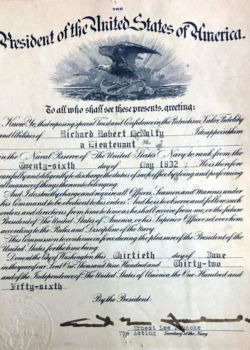 President of the United States of America.
To all who shall see these presents, greeting:
Know Ye, that reposing special Trust and Confidence in the Patriotism, Valor, Fidelity
and Abilities of Richard Robert McNulty I do appoint him
a Lieutenant
in the Naval Reserve of The United States Navy to rank from the
Twenty-sixth day of May 1932 He is therefore
carefully and diligently to discharge the duties of such office by doing and performing
all manner of things thereunto belonging.
And I do strictly charge and require all Officers, Seamen and Marines under
his Command to be obedient to his orders. And he is to observe and follow such
orders and directions from time to time as he shall receive from me, or the future
President of The United States of America, or his Superior Officer set over him
according to the Rules and Discipline of the Navy.
This Commission to continue in force during the pleasure of the President of
the United States for the time being.
Done at the City of Washington this Thirtieth day of June
in the year of our Lord One Thousand Nine Hundred and Thirty-two
and of the Independence of The United States of America the One Hundred and
Fifty-sixth.
By the President:
Ernest Lee Jahncke
The Acting Secretary of the Navy